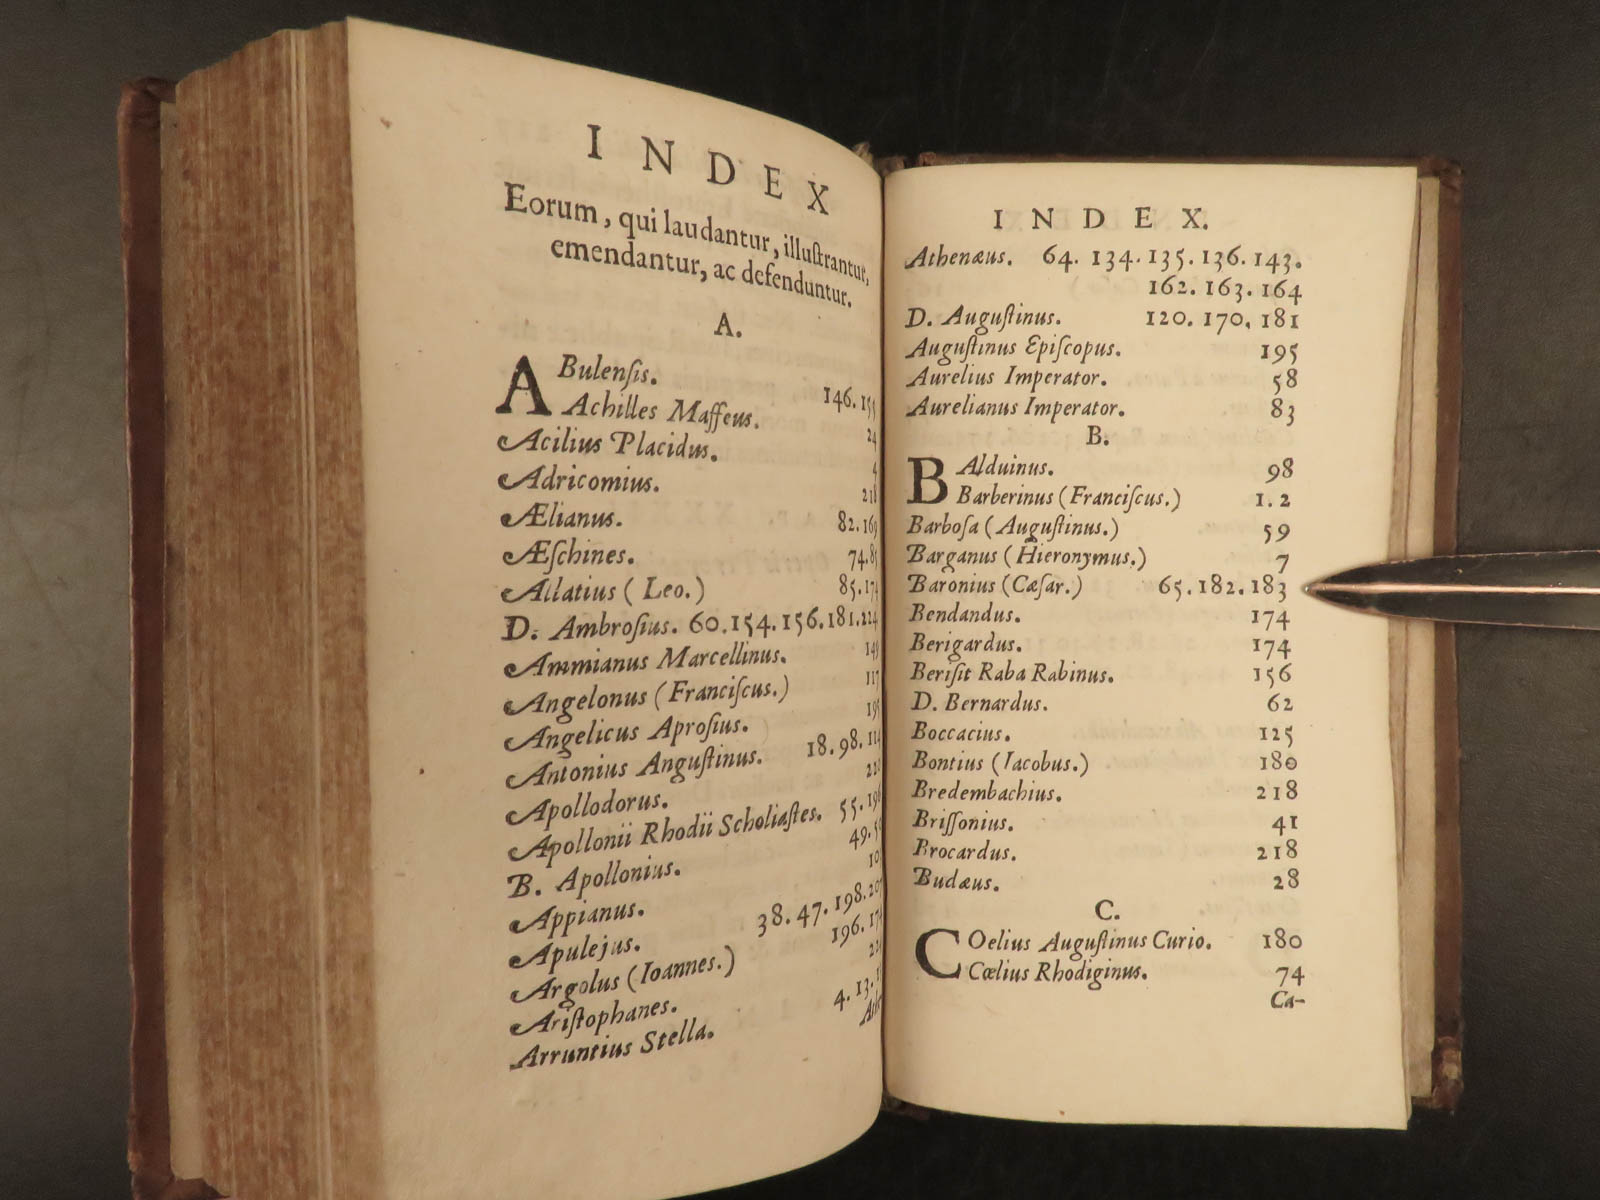 INDEX
Eorum, qui laudantur, illuſtrantur,
emendantur, ac defenduntur.
A.
ABulenſis. 146.155
Achilles Maffeus. 24
Acilius Placidus. 4
Adricomius. 218
Ælianus. 82.169
Æſchines. 74.85
Allatius (Leo.) 85.174
D. Ambroſius. 60.154.156.181.224
Ammianus Marcellinus. 149
Angelonus (Franciſcus.) 117
Angelicus Aproſius. 195
Antonius Anguſtinus. 18.98.114
Apollodorus.
Apollonii Rhodii Scholiaſtes. 55.196
B. Apollonius.
Appianus.
Apulejus. 38.47.198.207
Argolus (Ioannes.)
Ariſtophanes.
Arruntius Stella. 4.13.
INDEX.
Athenæus. 64. 134. 135. 136. 143.
162. 163. 164
D. Auguſtinus. 120. 170. 181
Auguſtinus Epiſcopus. 195
Aurelius Imperator. 58
Aurelianus Imperator. 83
B.
BAlduinus. 98
Barberinus (Franciſcus.) 1. 2
Barboſa (Auguſtinus.) 59
Barganus (Hieronymus.) 7
Baronius (Cæſar.) 65. 182. 183
Bendandus. 174
Berigardus. 174
Beriſit Raba Rabinus. 156
D. Bernardus. 62
Boccacius. 125
Bontius (Iacobus.) 180
Bredembachius. 218
Briſſonius. 41
Brocardus. 218
Budæus. 28
C.
COelius Auguſtinus Curio. 180
Cœlius Rhodiginus. 74
Ca-